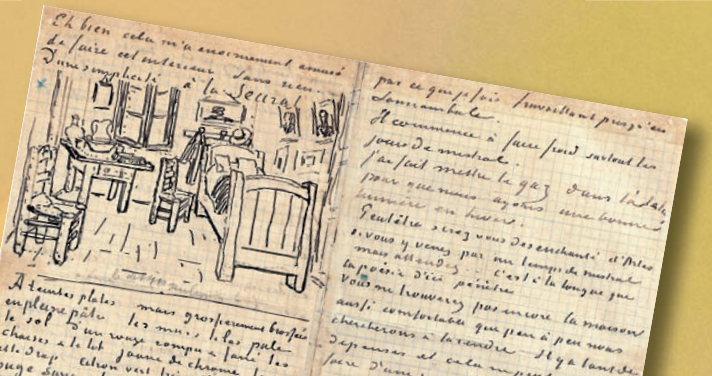 Eh bien cela m'a enormement amusé
de faire cet interieur sans rien.
D'une simplicité à la Seurat
A teintes plates mais grossierement brossées
en pleine pâte les murs lilas pale
le sol d'un rouge rompu & fané les
chaises & le lit jaune de chrome
drap citron vert
rouge
par ce que je fais travaillant presqu'en
somnambule.
Il commence à faire froid surtout les
jours de mistral.
J'ai fait mettre le gaz dans l'atelier
pour que nous ayons une bonne
lumière en hiver.
Peutêtre serez vous desenchanté d'Arles
si vous y venez par un temps de mistral
mais attendez... c'est à la longue que
la poësie d'ici penètre
Vous ne trouverez pas encore la maison
aussi comfortable que peu à peu nous
chercherons à la rendre Il y a tant de
depenses et cela
faire d'une